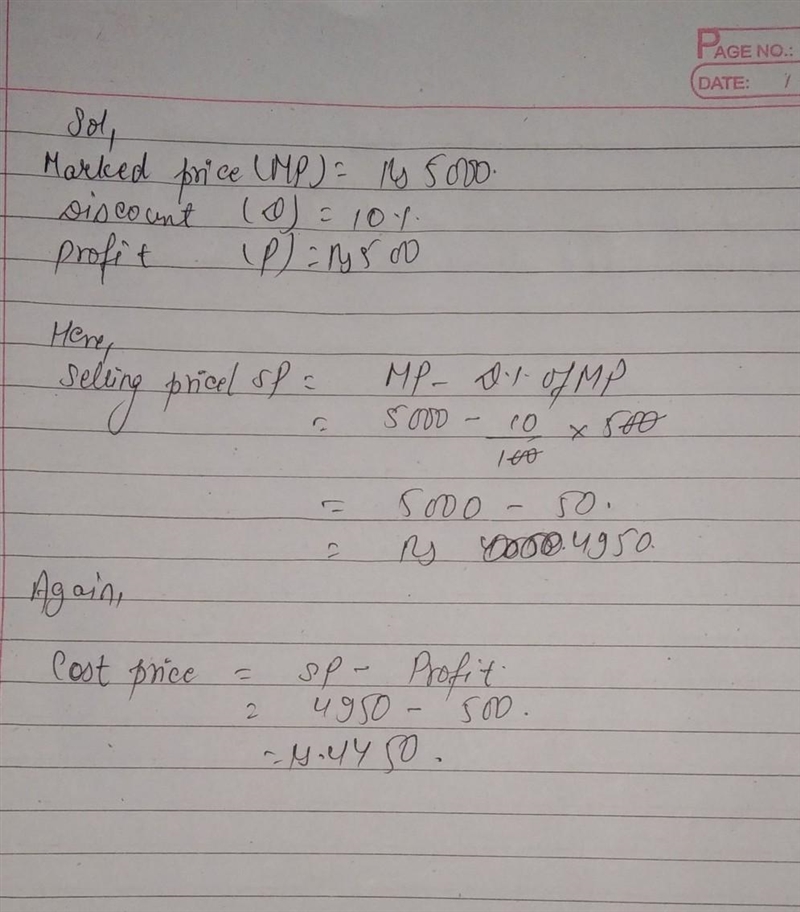 PAGE NO.:
DATE: /
Sol,
Marked price (MP) = Rs 5000.
Discount (D) = 10%.
Profit (P) = Rs 500
Here,
Selling price| SP = MP - D% of MP
= 5000 - 10/100 × 500
= 5000 - 50.
= Rs 4950.
Again,
Cost price = SP - Profit.
= 4950 - 500.
= Rs. 4450.